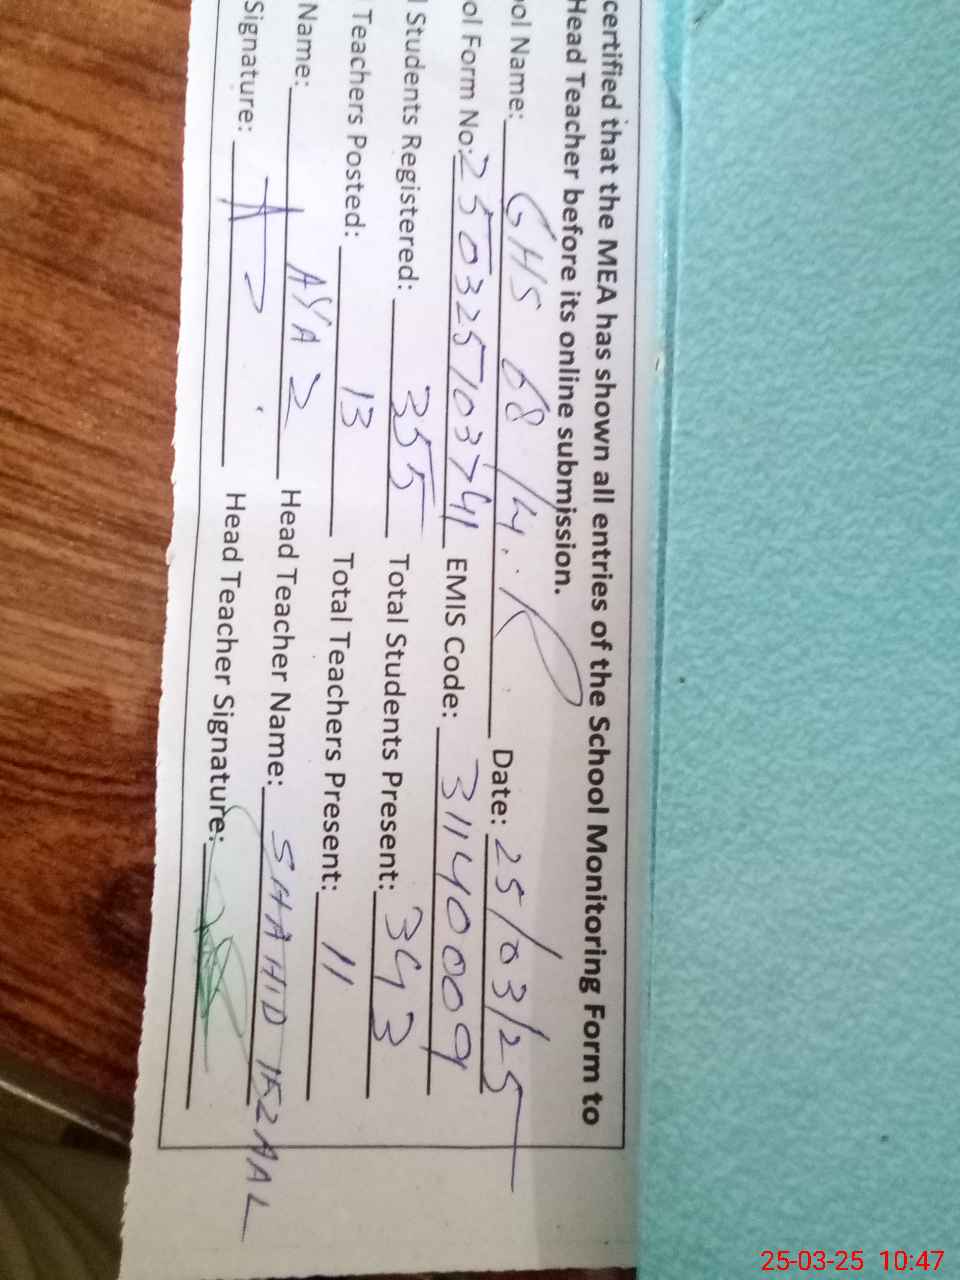 certified that the MEA has shown all entries of the School Monitoring Form to
Head Teacher before its online submission.
ool Name: GHS 68/4.R Date: 25/03/25
ol Form No: 250325103741 EMIS Code: 31140009
l Students Registered: 355 Total Students Present: 343
Teachers Posted: 13 Total Teachers Present: 11
Name: AYAZ Head Teacher Name: SHAHID IQBAL
Signature: Head Teacher Signature:
25-03-25 10:47